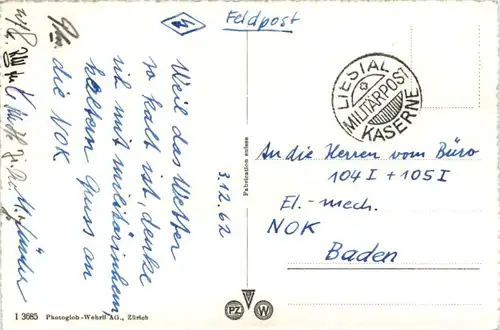 Feldpost
LIESTAL
MILITÄRPOST
KASERNE
Weil das Wetter
so kalt ist, denke
ich mit militärischem,
kaltem Gruss an
die NOK
3.12.62
An die Herren vom Büro
104 I + 105 I
El.-mech.
NOK
Baden
Fabrication suisse
I 3685 Photoglob-Wehrli AG., Zürich
PZ W